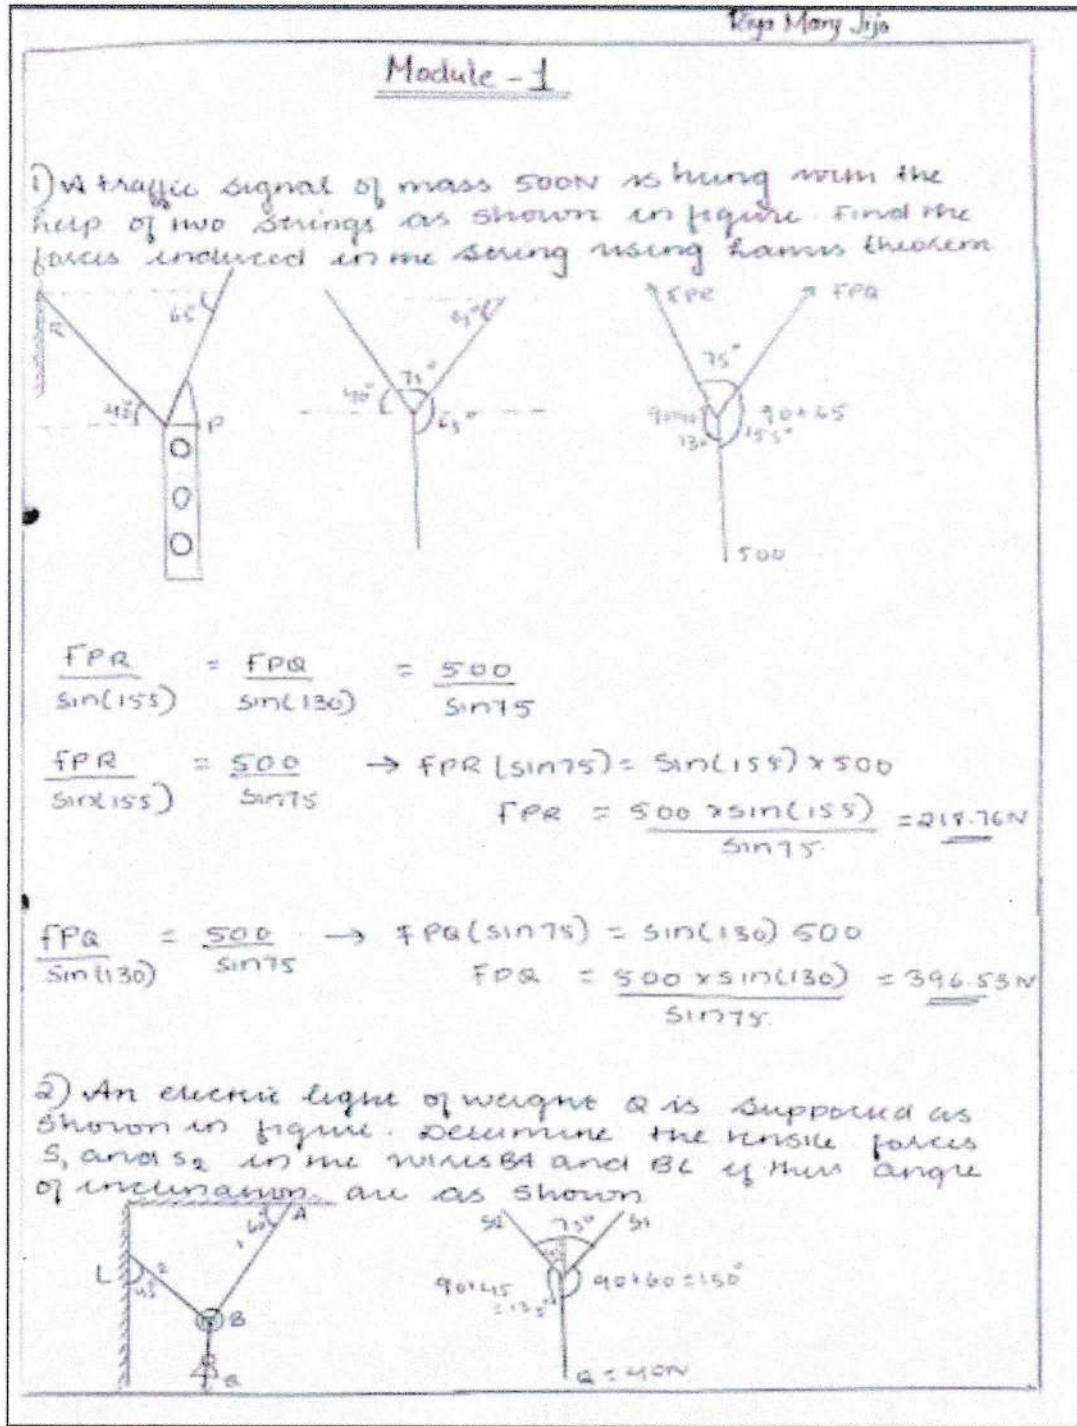 Mary Jijo
Module - 1
1) A traffic signal of mass 500N is hung with the
help of two strings as shown in figure. Find the
forces induced in the string using Lamis theorem
R
65
40°
P
40°
75°
65°
65°
FPR
FPQ
75°
90+40
130
90+65
155°
500
FPR/sin(155) = FPQ/sin(130) = 500/sin75
FPR/sin(155) = 500/sin75 → FPR(sin75) = sin(155) x 500
FPR = 500 x sin(155)/sin75 = 218.76N
FPQ/sin(130) = 500/sin75 → FPQ(sin75) = sin(130) 500
FPQ = 500 x sin(130)/sin75 = 396.53N
2) An electric light of weight Q is supported as
shown in figure. Determine the tensile forces
S1 and S2 in the wires BA and BC if their angle
of inclination are as shown
60°
A
L
45°
2
B
Q
S2
75°
S1
90+45
=135°
90+60=150°
Q = 40N